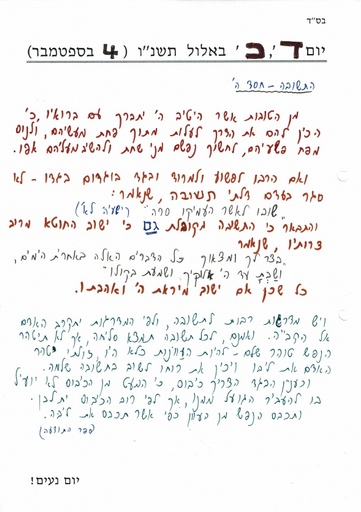 בס"ד
יום ד', כ' באלול תשנ"ו (4 בספטמבר)
התשובה - חסד ה'
מן הטובות אשר היטיב ה' יתברך עם ברואיו, כי
הכין להם את הדרך לעלות מתוך פחת מעשיהם, ולנוס
מפח פשעיהם, לחשוך נפשם מני שחת ולהשיב מעליהם אפו.
ואם הרבו לפשוע ולמרוד ובגד בוגדים בגדו - לא
סגר בעדם דלתי תשובה, שנאמר:
"שובו לאשר העמיקו סרה" (ישעיה לא')
והתבאר כי התשובה מקובלת גם כי ישוב החוטא מרוב
צרותיו, שנאמר
"בצר לך ומצאוך כל הדברים האלה באחרית הימים,
ושבת עד ה' אלוקיך ושמעת בקולו"
כל שכן אם ישוב מיראת ה' ואהבתו.
ויש מדרגות רבות לתשובה, ולפי המדרגות יתקרב האדם
אל הקב"ה. ואמנם, לכל תשובה תמצא סליחה, אך לא תיטהר
הנפש טוהר שלם - להיות העוונות כלא היו, זולתי יטהר
האדם את ליבו ויכין את רוחו לשוב בתשובה שלמה.
וכענין הבגד הצריך כיבוס, כי המעט מן הכיבוס לא יועיל
בו להעביר הגועל ממנו, אך לפי רוב הכיבוס יתלבן.
ותכבס הנפש מן העוון כפי אשר תכבס את ליבה.
(ספר התודעה)
יום נעים!